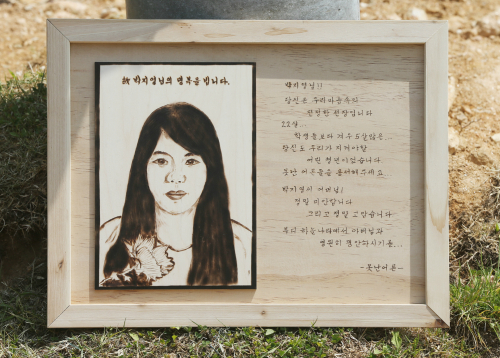 故 박지영님의 명복을 빕니다.
박지영님!!
당신은 우리마음속의
진정한 선장입니다
22살...
학생들보다 겨우 5살많은
당신도 우리가 지켜야할
어린 청년이었습니다
못난 어른들을 용서해주세요
박지영의 거에님!
정말 미안합니다
그리고 정말 고맙습니다
부디 하늘나라에서 아버님과
영원히 평안하시기를...
-못난어른-